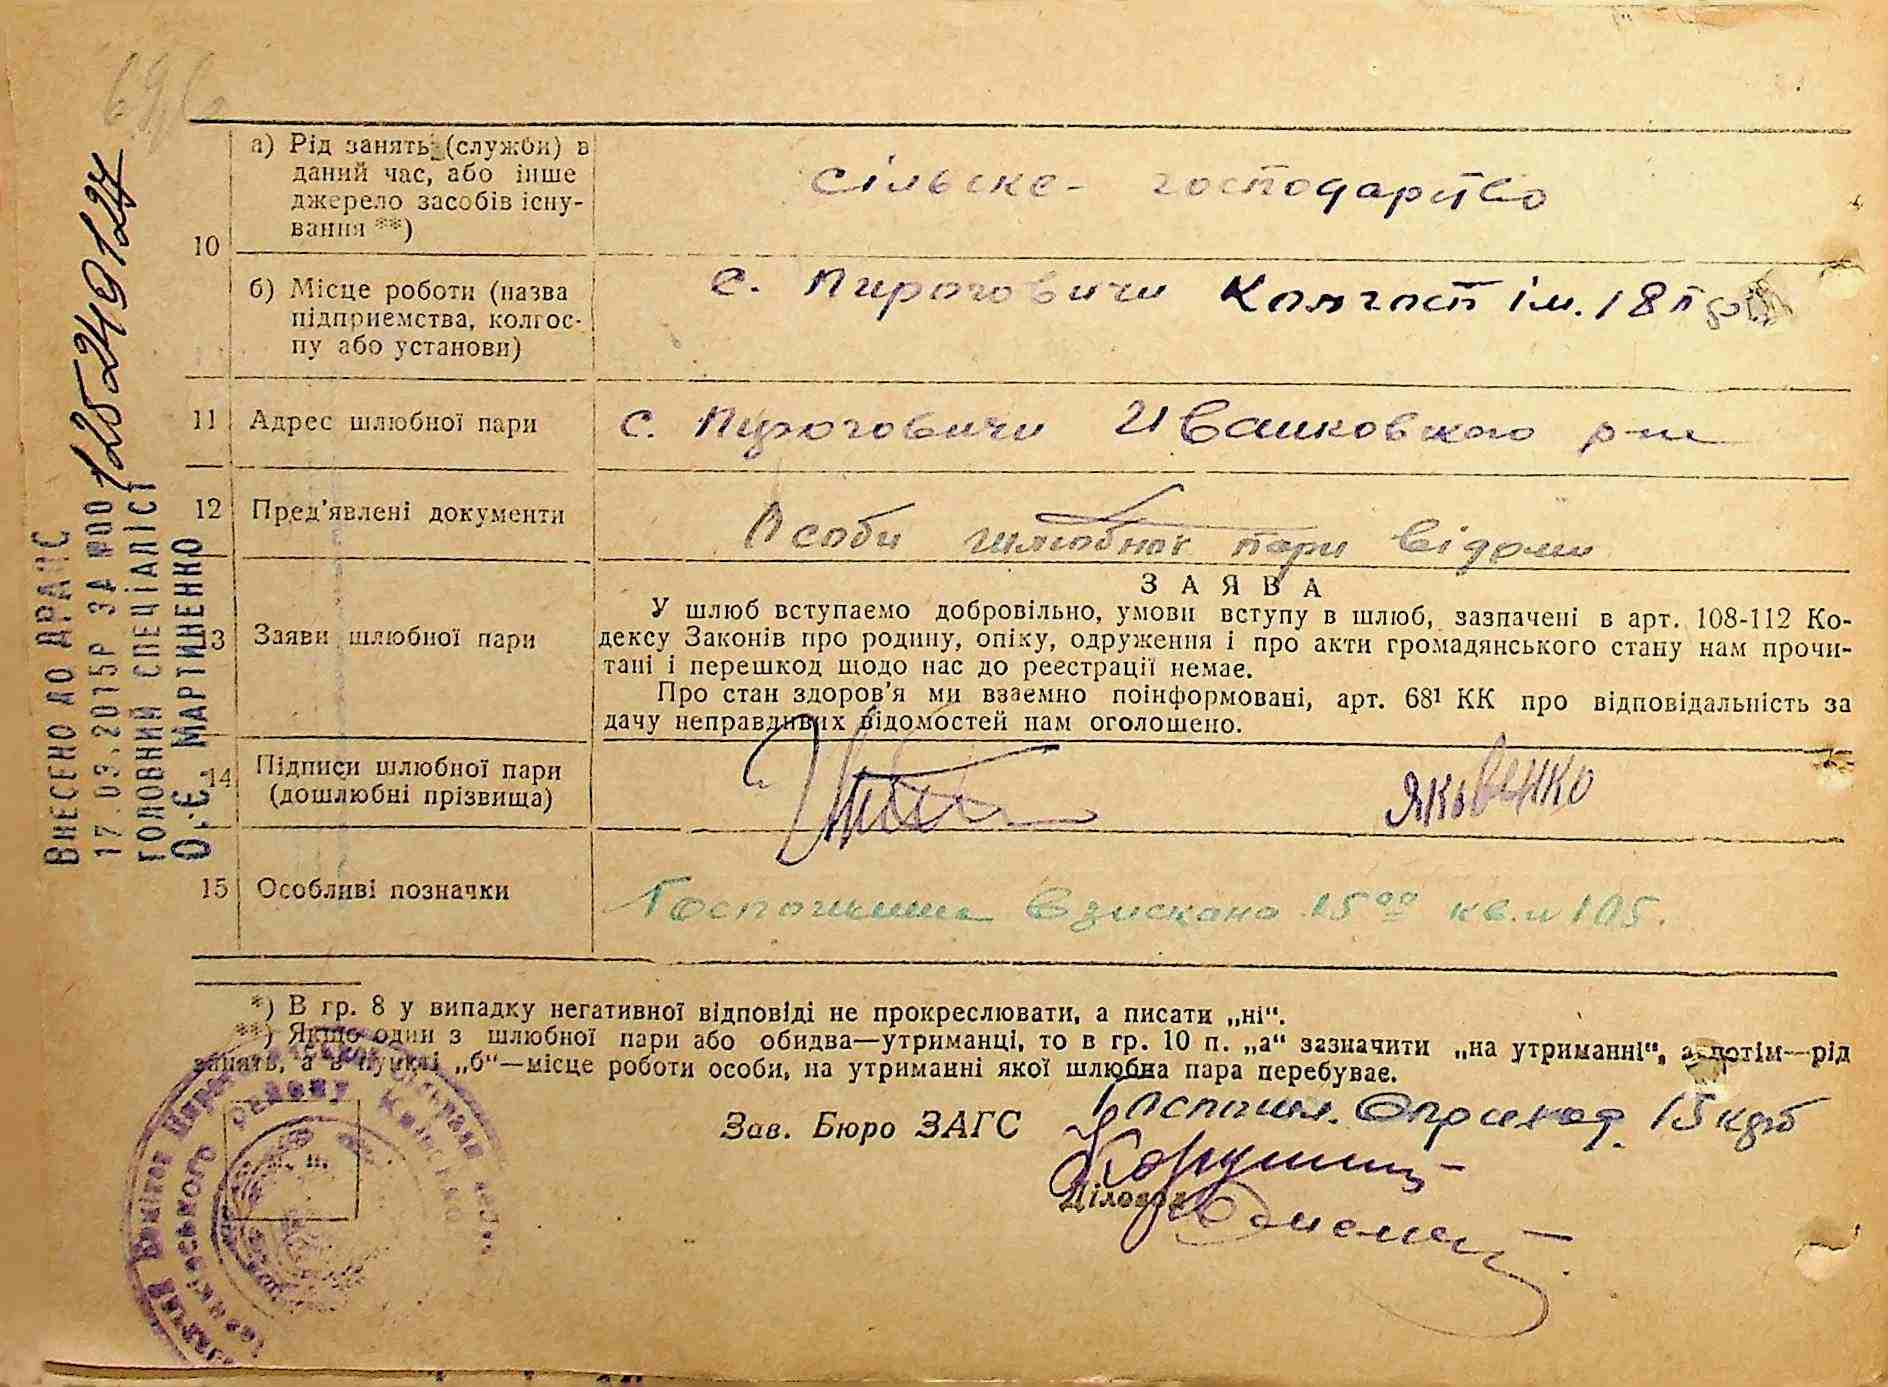 а) Рід занять (служби) в
даний час, або інше
джерело засобів існу-
вання **)
сільске- господарство
10
б) Місце роботи (назва
підприємства, колгос-
пу або установи)
с. Пироговичи Колгосп ім. 18
11 Адрес шлюбної пари
с. Пироговичи Иванковского р-на
12 Пред'явлені документи
Особи шлюбної пари відомі
13 Заяви шлюбної пари
ЗАЯВА
У шлюб вступаємо добровільно, умови вступу в шлюб, зазначені в арт. 108-112 Ко-
дексу Законів про родину, опіку, одруження і про акти громадянського стану нам прочи-
тані і перешкод щодо нас до реєстрації немає.
Про стан здоров'я ми взаємно поінформовані, арт. 68¹ КК про відповідальність за
дачу неправдивих відомостей нам оголошено.
14 Підписи шлюбної пари
(дошлюбні прізвища)
Яковенко
15 Особливі позначки
Госпошлина взискано 15⁰⁰ кв. № 105.
*) В гр. 8 у випадку негативної відповіді не прокреслювати, а писати „ні“.
**) Якщо один з шлюбної пари або обидва—утриманці, то в гр. 10 п. „а“ зазначити „на утриманні“, а потім—рід
занять, а в пункті „б“—місце роботи особи, на утриманні якої шлюбна пара перебуває.
Зав. Бюро ЗАГС
Діловод
М. П.
ВНЕСЕНО ДО ДРАЦС
17.03.2015Р ЗА №00125249127
ГОЛОВНИЙ СПЕЦІАЛІСТ
О.Є. МАРТИНЕНКО